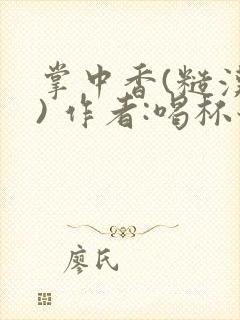 掌中香(糙
) 作者:喝杯
廖氏